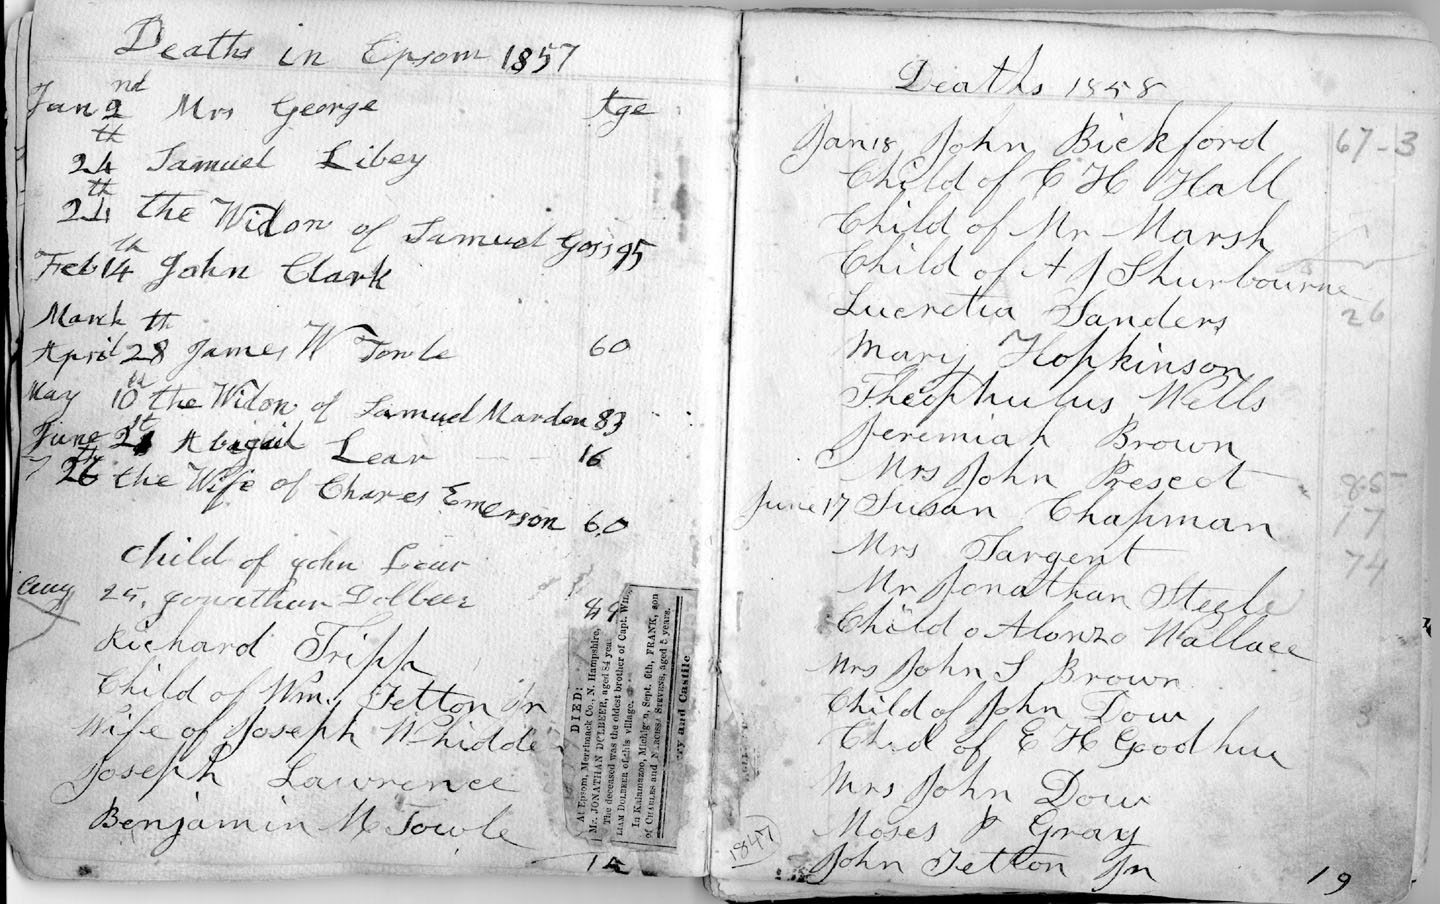 Deaths in Epsom 1857
Jan 2nd Mrs George Age
24th Samuel Libey
24th the Widow of Samuel Goss 95
Feb 14th John Clark
March
April 28th James W Towle 60
May 10th the Widow of Samuel Marden 83
June 21st Abigail Lear 16
26th the Wife of Charles Emerson 60
Child of John Lear
Aug 25, Jonathan Dolbeer 84
Richard Tripp
Child of Wm. Tetton Jr
Wife of Joseph Whidden
Joseph Lawrence
Benjamin M Towle
DIED:
At Epsom, Merrimack Co., N. Hampshire,
Mr. JONATHAN DOLBEER, aged 84 yea
The deceased was the oldest brother of Capt. Wil
LIAM DOLBEER of this village.
In Kalamazoo, Michigan, Sept. 6th, FRANK, son
of CHARLES and STEVENS, aged 5 years.
ry and Castile
Deaths 1858
Jan 18 John Bickford 67-3
Child of C H Hall
Child of Mr Marsh
Child of A J Shurbourne
Lucretia Sanders 26
Mary Hopkinson
Theophulus Wells
Jeremiah Brown
Mrs John Prescot 85
June 17 Susan Chapman 17
Mrs Targent 74
Mr Jonathan Steele
Child o Alonzo Wallace
Mrs John S Brown
Child of John Dow
Child of E H Goodhue
Mrs John Dow
Moses P Gray
1847
John Tetton Jn
19